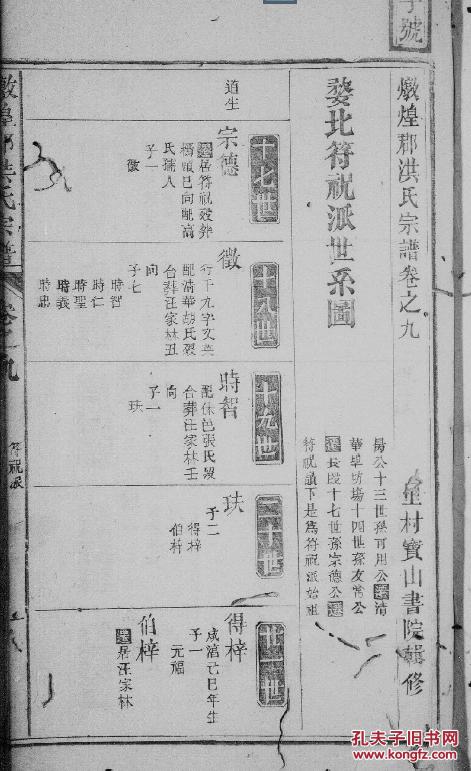 字號
燉煌郡洪氏宗譜卷之九
星村寶山書院輯修
婺北符祝派世系圖
景公十三世孫可用公遷清
華阜坊場十四世孫友常公
遷長段十七世孫宗德公遷
符祝嶺下是為符祝派始祖
十七世
道生
宗德
遷居符祝歿葬
橋頭巳向配高
氏瑞人
子一
徵
十八世
徵
行千九字文英
配清華胡氏歿
合葬汪家林丑
向
子七
時智
時仁
時聖
時義
時忠
十九世
時智
配休邑張氏歿
合葬汪家林壬
向
子一
玞
二十世
玞
子二
得梓
伯梓
廿一世
得梓
咸淳己巳年生
子一
元福
伯梓
遷居汪家林
燉煌郡洪氏宗譜
卷之九
符祝派
孔夫子旧书网
www.kongfz.com